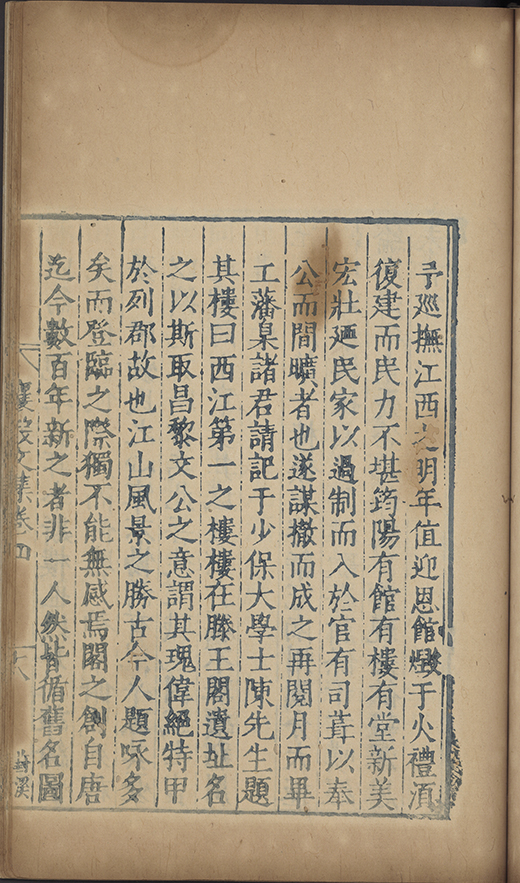 予廵撫江西之明年值迎恩館燬于火禮湏
復建而民力不堪筠陽有館有樓有堂新美
宏壯廼民家以過制而入於官有司葺以奉
公而間曠者也遂謀撤而成之再閱月而畢
工藩臬諸君請記于少保大學士陳先生題
其樓曰西江第一之樓樓在滕王閣遺址名
之以斯取昌黎文公之意謂其瑰偉絕特甲
於列郡故也江山風景之勝古今人題咏多
矣而登臨之際獨不能無感焉閣之創自唐
迄今數百年新之者非一人然皆循舊名圖
毅文集卷四